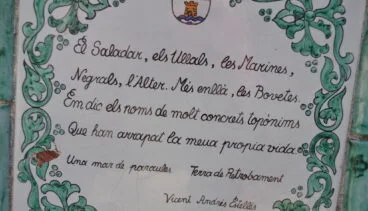 El Saladar, els Ullals, les Marines,
Negrals, l'Alter. Més enllà, les Bovetes.
Em dic els noms de molt concrets topònims
Que han arrapat la meua propia vida.
Una mar de paraules Terra de Retrobament
Vicent Andrés Estellés